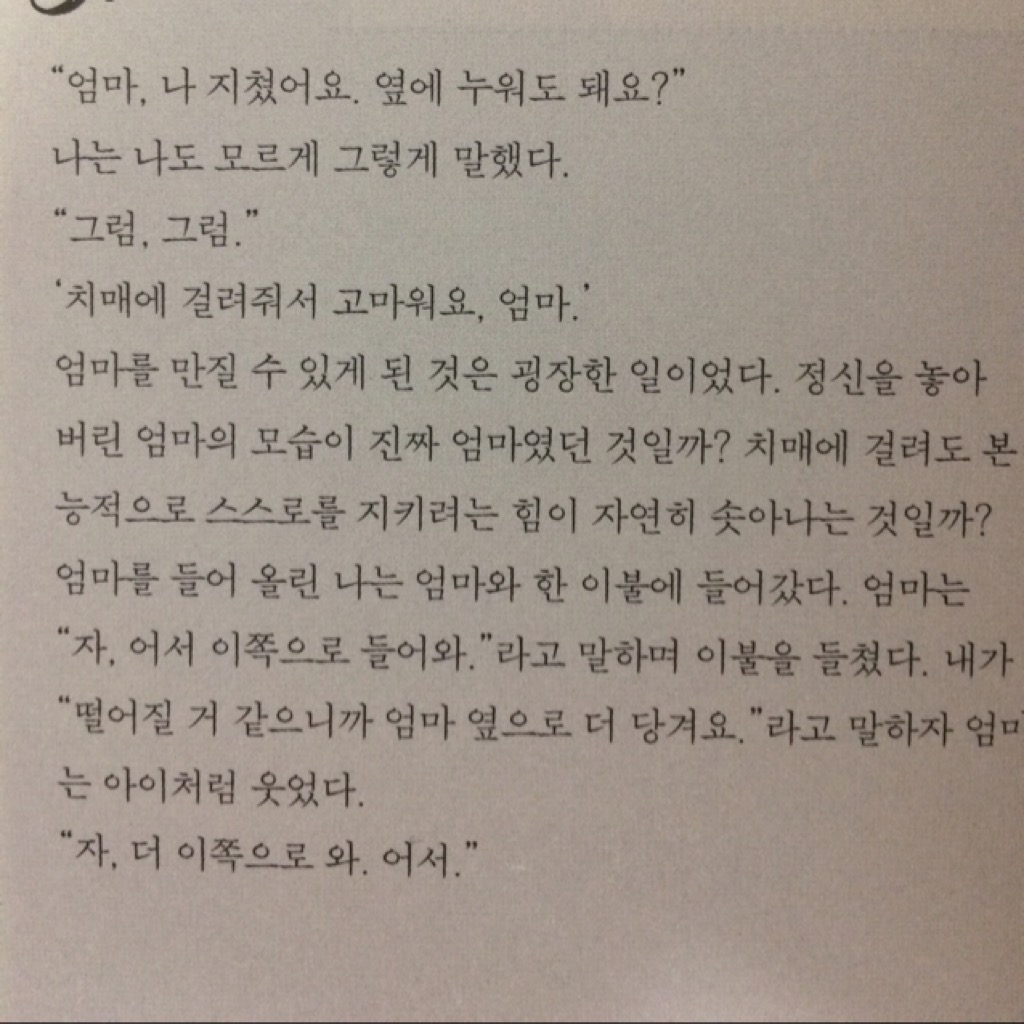 “엄마, 나 지쳤어요. 옆에 누워도 돼요?”
나는 나도 모르게 그렇게 말했다.
“그럼, 그럼.”
‘치매에 걸려줘서 고마워요, 엄마.’
엄마를 만질 수 있게 된 것은 굉장한 일이었다. 정신을 놓아
버린 엄마의 모습이 진짜 엄마였던 것일까? 치매에 걸려도 본
능적으로 스스로를 지키려는 힘이 자연히 솟아나는 것일까?
엄마를 들어 올린 나는 엄마와 한 이불에 들어갔다. 엄마는
“자, 어서 이쪽으로 들어와.”라고 말하며 이불을 들쳤다. 내가
“떨어질 거 같으니까 엄마 옆으로 더 당겨요.”라고 말하자 엄마
는 아이처럼 웃었다.
“자, 더 이쪽으로 와. 어서.”